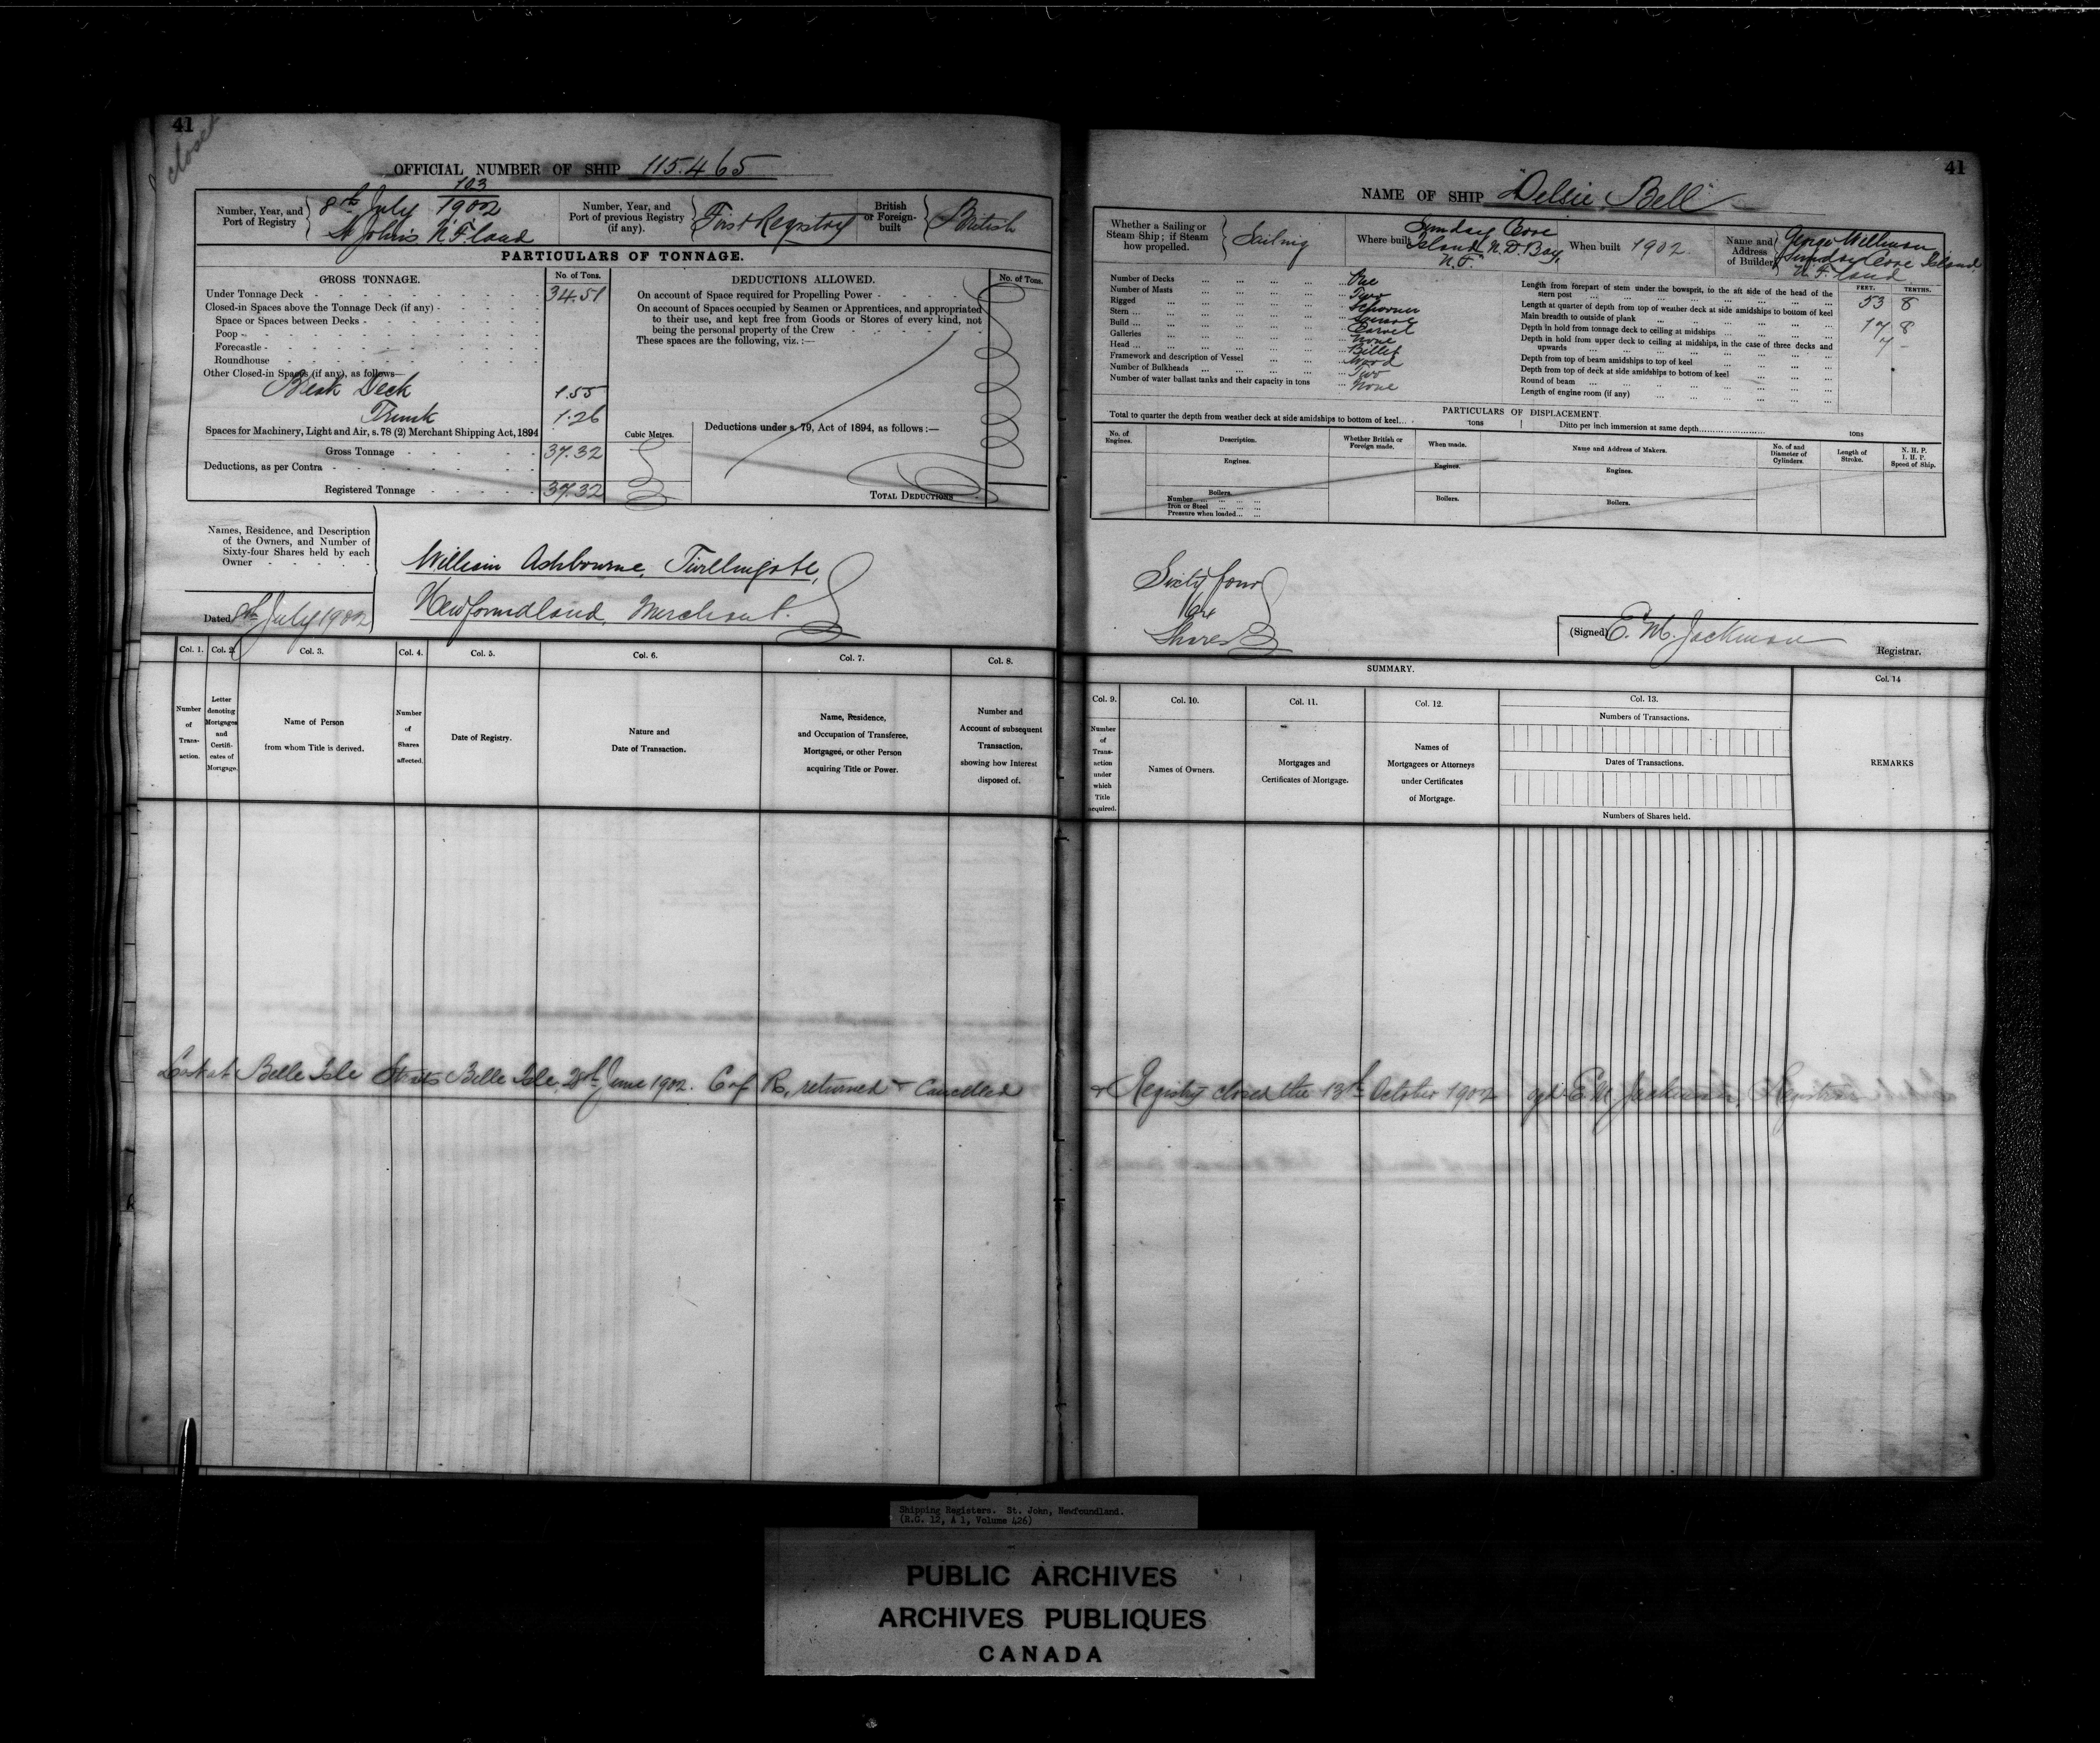 41
closed
OFFICIAL NUMBER OF SHIP 115.465
Number, Year, and Port of Registry
103
8th July 1902
St John's N.F.land
Number, Year, and Port of previous Registry (if any).
First Registry
British or Foreign-built
British
PARTICULARS OF TONNAGE.
GROSS TONNAGE.
No. of Tons.
DEDUCTIONS ALLOWED.
No. of Tons.
Under Tonnage Deck 34.51
Closed-in Spaces above the Tonnage Deck (if any)
Space or Spaces between Decks
Poop
Forecastle
Roundhouse
Other Closed-in Spaces (if any), as follows—
Break Deck 1.55
Trunk 1.26
Spaces for Machinery, Light and Air, s. 78 (2) Merchant Shipping Act, 1894
Cubic Metres.
Gross Tonnage 37.32
Deductions, as per Contra
Registered Tonnage 37.32
On account of Space required for Propelling Power
On account of Spaces occupied by Seamen or Apprentices, and appropriated
to their use, and kept free from Goods or Stores of every kind, not
being the personal property of the Crew
These spaces are the following, viz. :—
Deductions under s. 79, Act of 1894, as follows :—
TOTAL DEDUCTIONS
Names, Residence, and Description
of the Owners, and Number of
Sixty-four Shares held by each
Owner
William Ashbourne, Twillingate,
Newfoundland, Merchant.
Dated 8th July 1902
Col. 1. Col. 2. Col. 3. Col. 4. Col. 5. Col. 6. Col. 7. Col. 8.
Number of Transaction.
Letter denoting Mortgages and Certificates of Mortgage.
Name of Person from whom Title is derived.
Number of Shares affected.
Date of Registry.
Nature and Date of Transaction.
Name, Residence, and Occupation of Transferee, Mortgagee, or other Person acquiring Title or Power.
Number and Account of subsequent Transaction, showing how Interest disposed of.
Lost at Belle Isle Straits Belle Isle, 28th June 1902. C of R, returned & Cancelled
41
NAME OF SHIP "Delsie Bell"
Whether a Sailing or Steam Ship; if Steam how propelled.
Sailing
Where built
Sunday Cove
Island, N.D. Bay,
N.F.
When built 1902.
Name and Address of Builder
George Wellman
Sunday Cove Island
N.F.land
Number of Decks One
Number of Masts Two
Rigged Schooner
Stern Square
Build Carvel
Galleries None
Head Billet
Framework and description of Vessel Wood
Number of Bulkheads Two
Number of water ballast tanks and their capacity in tons None
FEET. TENTHS.
Length from forepart of stem under the bowsprit, to the aft side of the head of the
stern post 53 8
Length at quarter of depth from top of weather deck at side amidships to bottom of keel
Main breadth to outside of plank 17 8
Depth in hold from tonnage deck to ceiling at midships 7 -
Depth in hold from upper deck to ceiling at midships, in the case of three decks and
upwards
Depth from top of beam amidships to top of keel
Depth from top of deck at side amidships to bottom of keel
Round of beam
Length of engine room (if any)
PARTICULARS OF DISPLACEMENT.
Total to quarter the depth from weather deck at side amidships to bottom of keel tons
Ditto per inch immersion at same depth tons
No. of Engines.
Description.
Whether British or Foreign made.
When made.
Name and Address of Makers.
No. of and Diameter of Cylinders.
Length of Stroke.
N. H. P.
I. H. P.
Speed of Ship.
Engines. Engines. Engines.
Boilers. Boilers. Boilers.
Number
Iron or Steel
Pressure when loaded
Sixty four
64
Shares
(Signed) E. M. Jackman
Registrar.
SUMMARY.
Col. 9. Col. 10. Col. 11. Col. 12. Col. 13. Col. 14
Number of Transaction under which Title acquired.
Names of Owners.
Mortgages and Certificates of Mortgage.
Names of Mortgagees or Attorneys under Certificates of Mortgage.
Numbers of Transactions.
Dates of Transactions.
Numbers of Shares held.
REMARKS
& Registry closed the 13th October 1902 sgd E. M. Jackman, Registrar
Shipping Registers. St. John, Newfoundland.
(R.G. 12, A 1, Volume 426)
PUBLIC ARCHIVES
ARCHIVES PUBLIQUES
CANADA